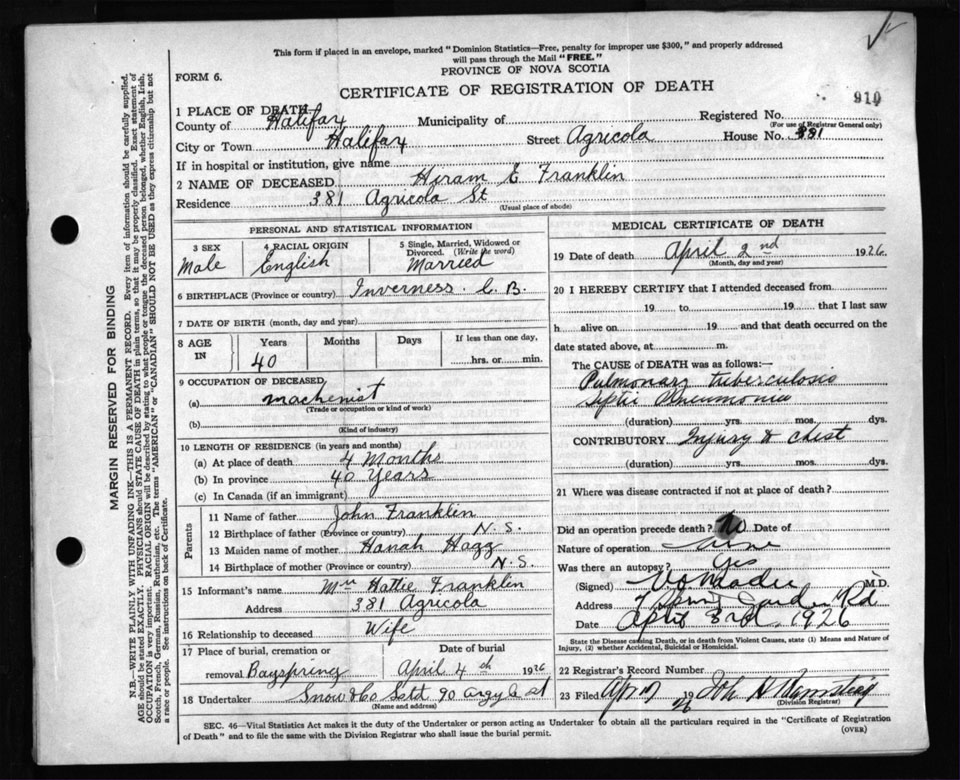 This form if placed in an envelope, marked "Dominion Statistics—Free, penalty for improper use $300," and properly addressed
will pass through the Mail "FREE."
FORM 6.
PROVINCE OF NOVA SCOTIA
CERTIFICATE OF REGISTRATION OF DEATH
910
1 PLACE OF DEATH
County of Halifax Municipality of Registered No.
(For use of Registrar General only)
City or Town Halifax Street Agricola House No. 381
If in hospital or institution, give name
2 NAME OF DECEASED Hiram E Franklin
Residence 381 Agricola St
(Usual place of abode)
PERSONAL AND STATISTICAL INFORMATION
3 SEX 4 RACIAL ORIGIN 5 Single, Married, Widowed or
Divorced. (Write the word)
Male English Married
6 BIRTHPLACE (Province or country) Inverness. C. B.
7 DATE OF BIRTH (month, day and year)
8 AGE IN Years Months Days If less than one day,
40 hrs. or min.
9 OCCUPATION OF DECEASED
(a) machenist
(Trade or occupation or kind of work)
(b)
(Kind of industry)
10 LENGTH OF RESIDENCE (in years and months)
(a) At place of death 4 Months
(b) In province 40 Years
(c) In Canada (if an immigrant)
Parents
11 Name of father John Franklin
12 Birthplace of father (Province or country) N. S.
13 Maiden name of mother Hanah
14 Birthplace of mother (Province or country) N. S.
15 Informant's name Hattie Franklin
Address 381 Agricola
16 Relationship to deceased Wife
17 Place of burial, cremation or Date of burial
removal Bayspring April 4th 1926
18 Undertaker Snow & Co 90 Argyle st
(Name and address)
MEDICAL CERTIFICATE OF DEATH
19 Date of death April 2nd 1926
(Month, day and year)
20 I HEREBY CERTIFY that I attended deceased from
19 to 19, that I last saw
h alive on 19 and that death occurred on the
date stated above, at m.
The CAUSE OF DEATH was as follows:—
Pulmonary tuberculosis
Septic Pneumonia
(duration) yrs. mos. dys.
CONTRIBUTORY Injury to chest
(duration) yrs. mos. dys.
21 Where was disease contracted if not at place of death?
Did an operation precede death? No Date of
Nature of operation
Was there an autopsy? Yes
(Signed) M.D.
Address Rd
Date April 3rd. 1926
State the Disease causing Death, or in death from Violent Causes, state (1) Means and Nature of
Injury, (2) whether Accidental, Suicidal or Homicidal.
22 Registrar's Record Number
23 Filed Apr 7 26
(Division Registrar)
SEC. 46—Vital Statistics Act makes it the duty of the Undertaker or person acting as Undertaker to obtain all the particulars required in the "Certificate of Registration
of Death" and to file the same with the Division Registrar who shall issue the burial permit.
(OVER)
MARGIN RESERVED FOR BINDING
N.B.—WRITE PLAINLY WITH UNFADING INK—THIS IS A PERMANENT RECORD. Every item of information should be carefully supplied.
AGE should be stated EXACTLY. PHYSICIANS should STATE CAUSE OF DEATH in plain terms, so that it may be properly classified. Exact statement of
OCCUPATION is very important. RACIAL ORIGIN will be described by stating to what people or tongue the deceased person belonged, whether English, Irish,
Scotch, French, German, Russian, Ruthenian, etc. The terms "AMERICAN" or "CANADIAN" SHOULD NOT BE USED as they express citizenship but not
a race or people. See instructions on back of Certificate.